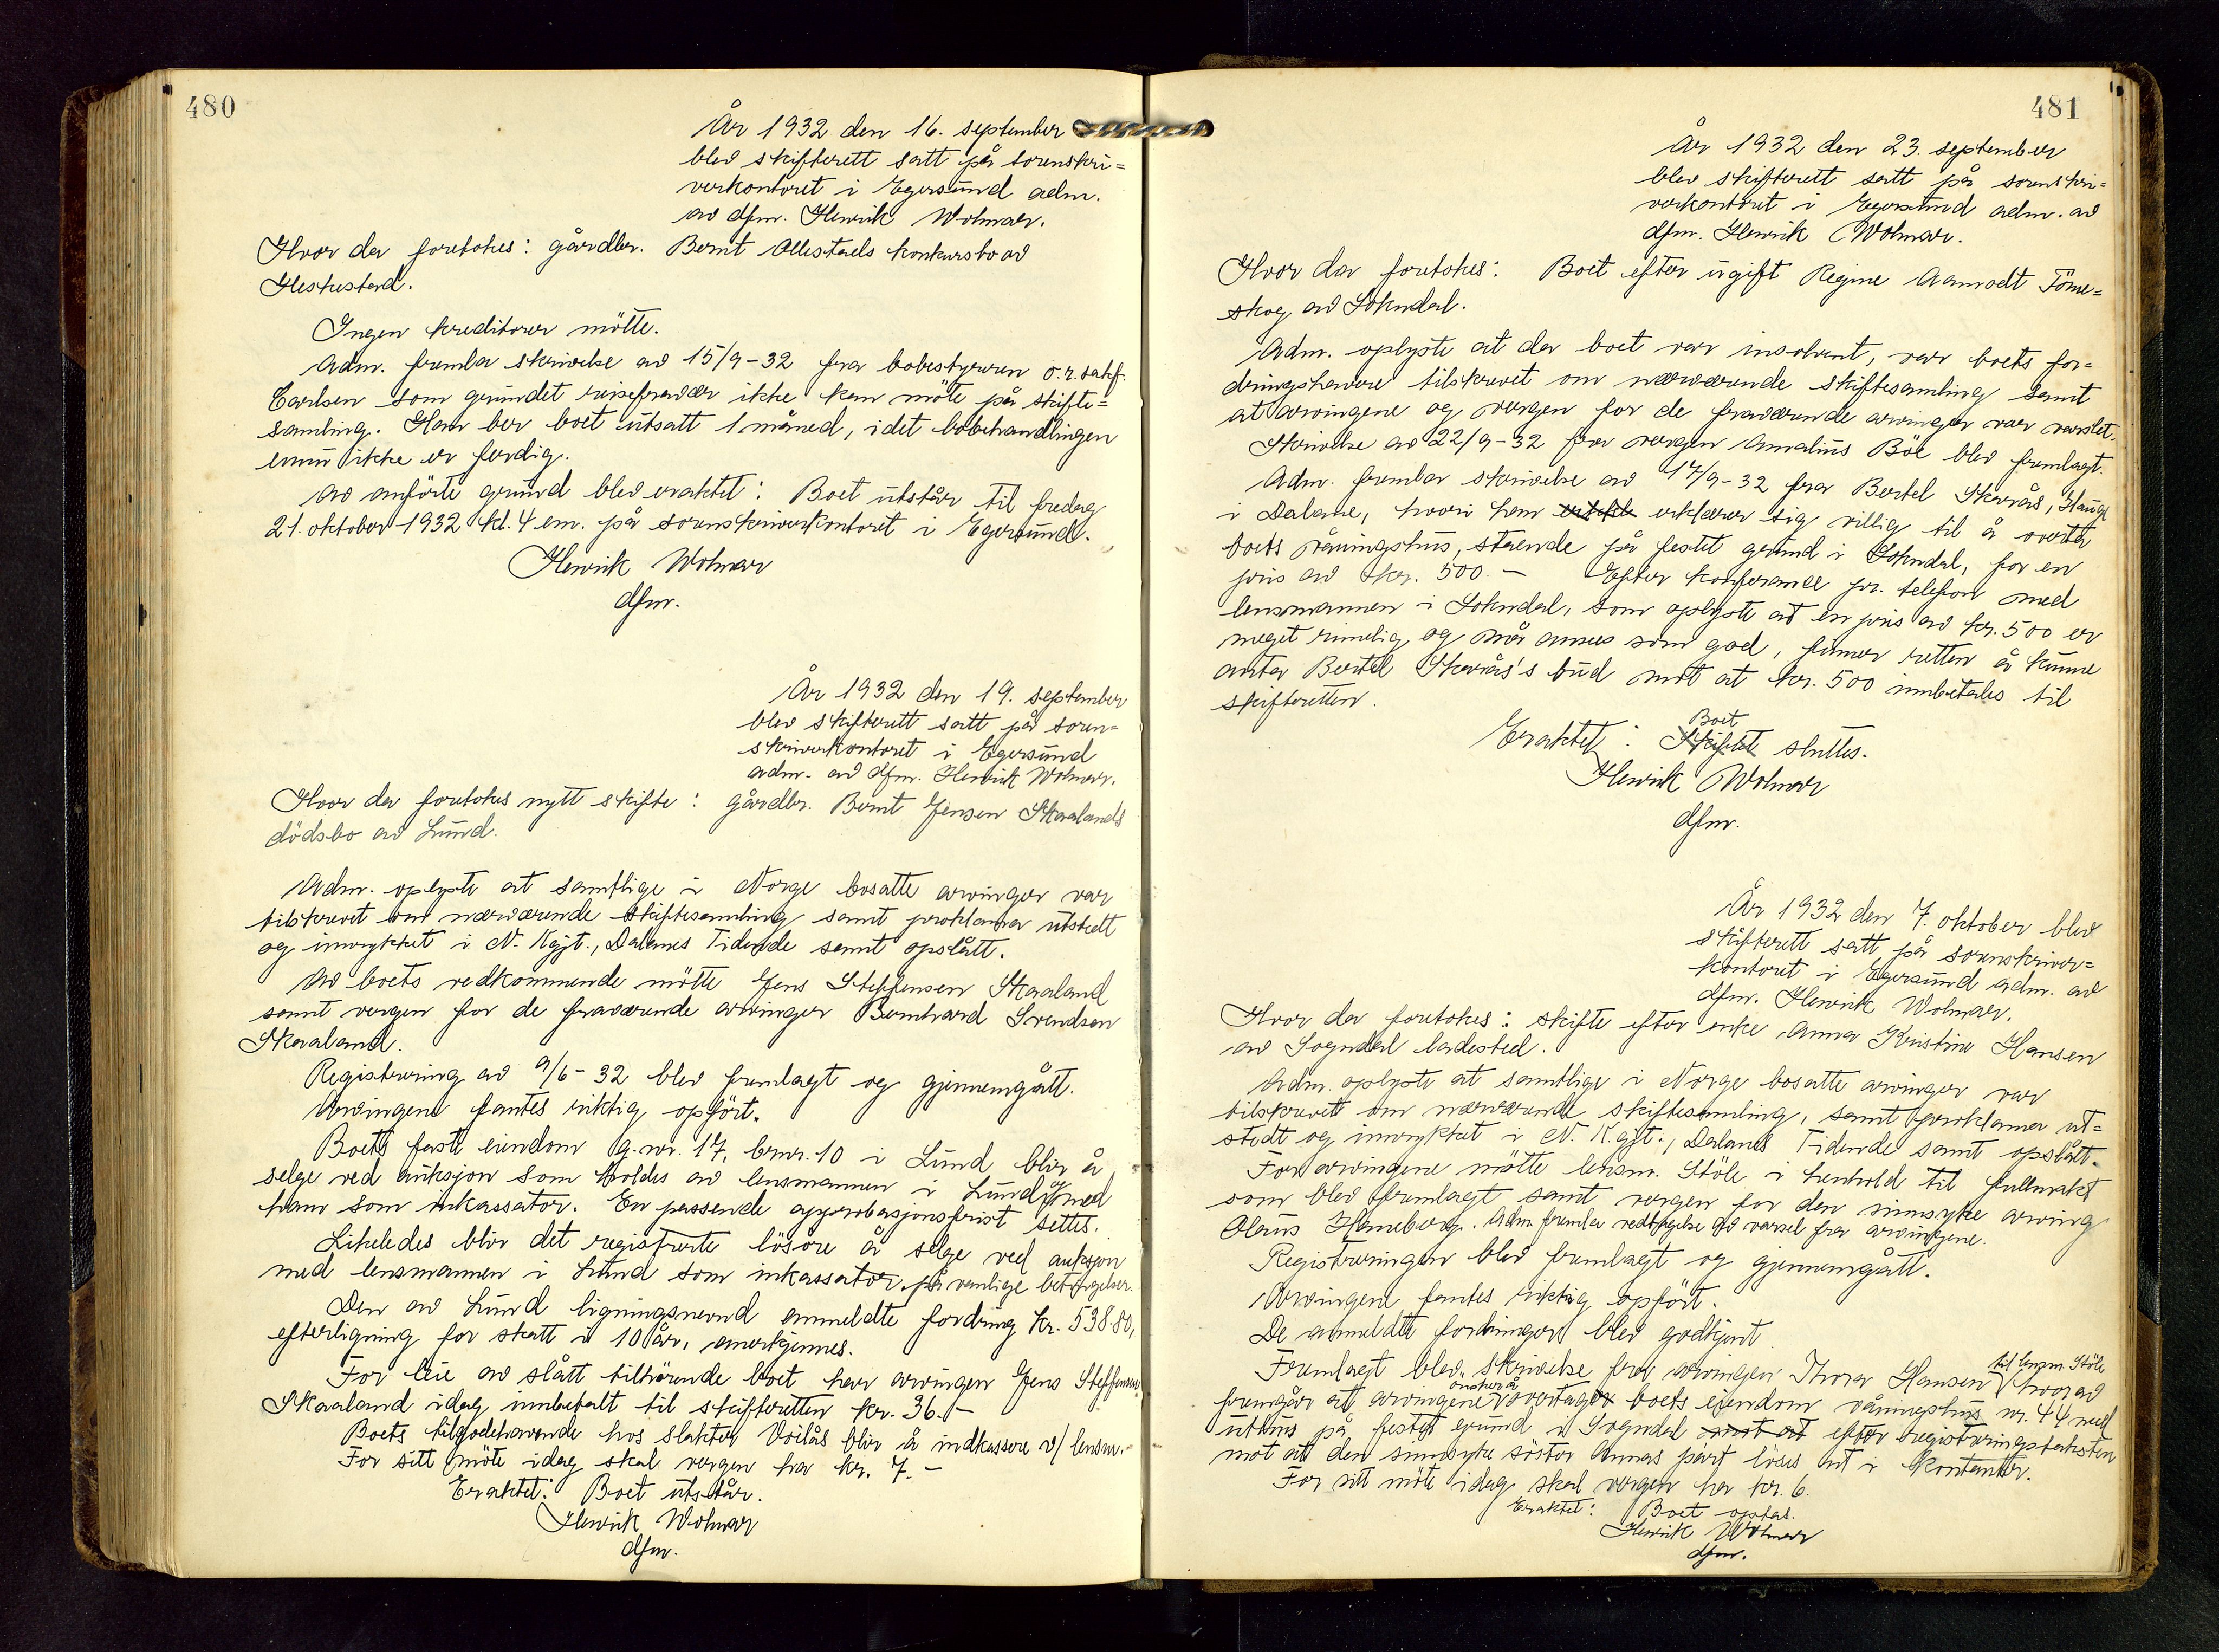 480
År 1932 den 16. september
blev skifterett satt på sorenskri=
verkontoret i Egersund adm.
av dfm. Henrik Wolmar.
Hvor da foretokes: gårdbr. Bernt Ollestads konkursbo av
Heskestad.
Ingen kreditorer mötte.
Adm. fremla skrivelse av 15/9-32 fra bobestyreren o.r.sakf.
Carlsen som grundet reisefravær ikke kan möte på skifte=
samling. Han ber boet utsatt 1 måned, idet bobehandlingen
ennu ikke er ferdig.
Av anförte grund blev eraktet: Boet utstår til fredag
21. oktober 1932 kl. 4 em. på sorenskriverkontoret i Egersund.
Henrik Wolmar
dfm.
År 1932 den 19. september
blev skifterett satt på soren=
skriverkontoret i Egersund
adm. av dfm. Henrik Wolmar.
Hvor da foretokes nytt skifte: gårdbr. Bernt Jensen Skaalands
dödsbo av Lund.
Adm. oplyste at samtlige i Norge bosatte arvinger var
tilskrevet om nærværende skiftesamling samt proklama utstedt
og innrykket i N. Kgjt., Dalanes Tidende samt opslått.
Av boets vedkommende mötte Jens Steffensen Skaaland
samt vergen for de fraværende arvinger Bernhard Svendsen
Skaaland.
Registrering av 9/6-32 blev fremlagt og gjennemgått.
Arvingene fantes riktig opfört.
Boets faste eiendom g.nr. 17, br.nr. 10 i Lund blir å
selge ved auksjon som holdes av lensmannen i Lund og med
ham som inkassator. En passende approbasjonsfrist settes.
Likeledes blir det registrerte lösöre å selge ved auksjon
med lensmannen i Lund som inkassator på vanlige betingelser.
Den av Lund ligningsnevnd anmeldte fordring kr. 538.80,
efterligning for skatt i 10 år, anerkjennes.
For leie av slått tilhörende boet har arvingen Jens Steffensen
Skaaland idag innbetalt til skifteretten kr. 36.-
Boets tilgodehavende hos slakter Voilås blir å indkassere v/ lensm.-
For sitt möte idag skal vergen ha kr. 7.-
Eraktet: Boet utstår.
Henrik Wolmar
dfm.
481
År 1932 den 23. september
blev skifterett satt på sorenskri=
verkontoret i Egersund adm. av
dfm. Henrik Wolmar.
Hvor da foretokes: Boet efter ugift Regine Aamodt Töme=
skog av Sokndal.
Adm. oplyste at da boet var insolvent, var boets for=
dringshavere tilskrevet om nærværende skiftesamling samt
at arvingene og vergen for de fraværende arvinger var varslet.
Skrivelse av 22/9-32 fra vergen Annalius Böe blev fremlagt.
Adm. fremla skrivelse av 17/9-32 fra Bertel Skarås, Hauge
i Dalane, hvori han erklærer sig villig til å overta
boets våningshus, stående på festet grund i Sokndal, for en
pris av kr. 500.- Efter konferance pr. telefon med
lensmannen i Sokndal, som oplyste at en pris av kr. 500 er
meget rimelig og må annees som god, finner retten å kunne
anta Bertel Skarås's bud mot at kr. 500 innbetales til
skifteretten.
Eraktet: Skiftet Boet sluttes.
Henrik Wolmar
dfm.
År 1932 den 7. oktober blev
skifterett satt på sorenskriver=
kontoret i Egersund adm. av
dfm. Henrik Wolmar.
Hvor da foretokes: skifte efter enke Anna Kristine Hansen
av Sogndal ladested.
Adm. oplyste at samtlige i Norge bosatte arvinger var
tilskrevet om nærværende skiftesamling, samt proklama ut=
stedt og innrykket i N. K.gjt., Dalanes Tidende samt opslått.
For arvingene mötte lensm. Stöle i henhold til fullmakt
som blev fremlagt samt vergen for den sinnsyke arving
Olaus Henneberg. Adm. fremla vedtagelse av varsel fra arvingene.
Registreringen blev fremlagt og gjennemgått.
Arvingene fantes riktig opfört.
De anmeldte fordringer blev godkjent.
Fremlagt blev skrivelse fra arvingen Thora Hansen til lensm. Stöle hvorav
fremgår at arvingene önsker å overtage boets eiendom våningshus nr. 44 med
uthus på festet grund i Sogndal samt at efter registreringstaksten
mot at den sinnsyke söster Annas part löses ut i kontanter.
For sitt möte idag skal vergen ha kr. 6.
Eraktet: Boet optas.
Henrik Wolmar
dfm.